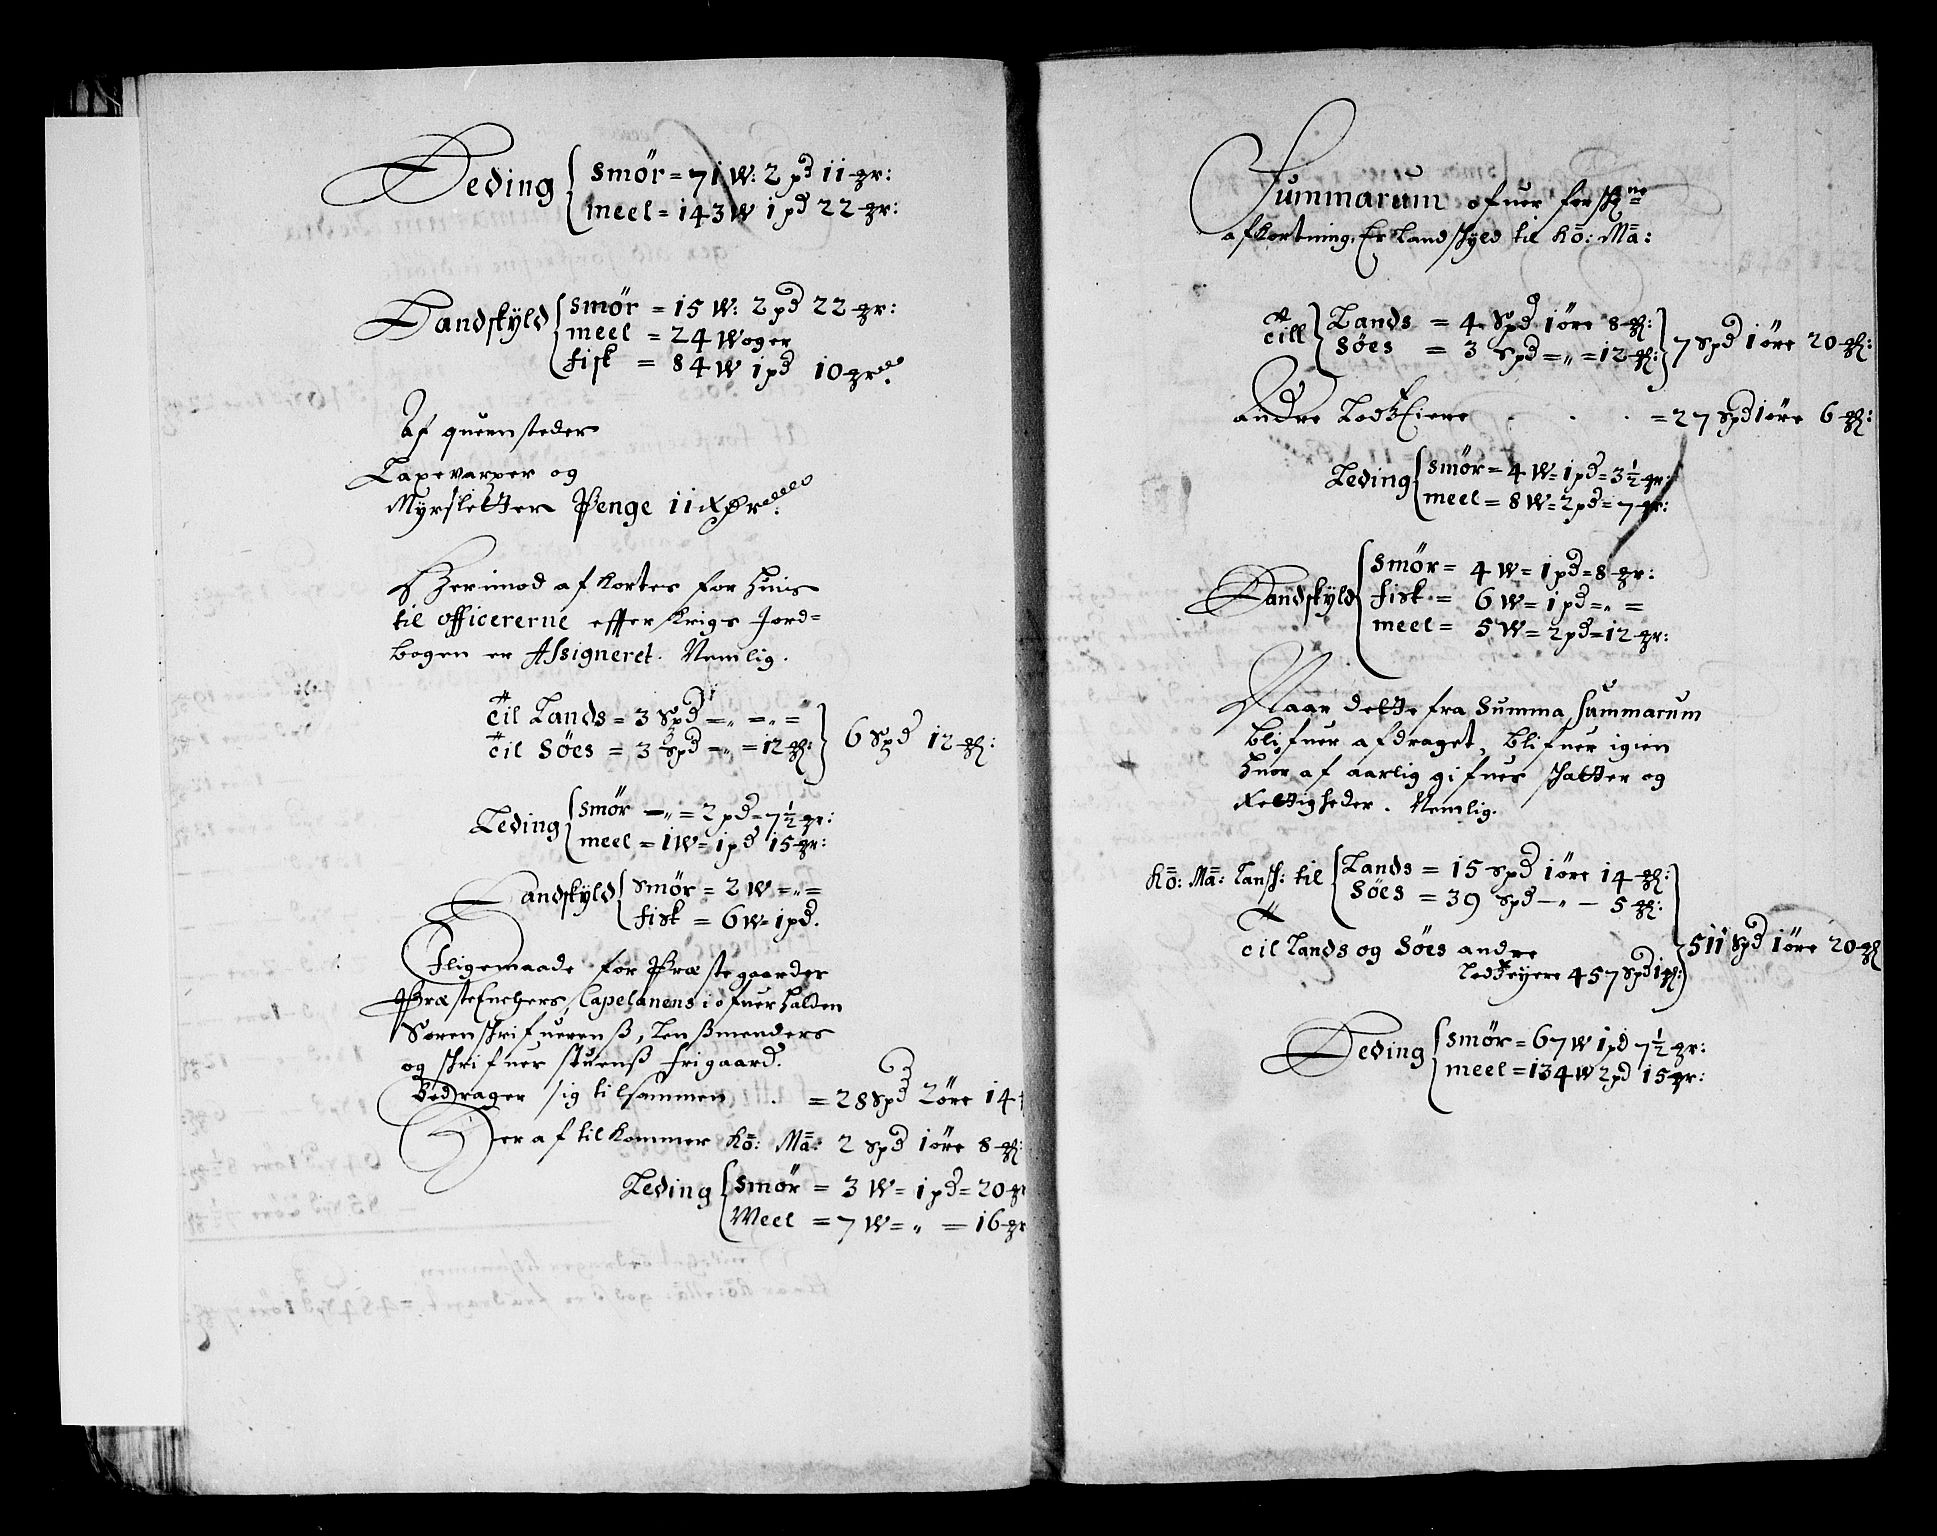 Leding { smör = 71 W: 2 pd 11 gr:
meel = 143 W 1 pd 22 gr:
Landskyld { smör = 15 W: 2 pd 22 gr:
meel = 24 Woger
fisk = 84 W 1 pd 10 gr
Af quernsteder
Laxevarper og
Myrsletter Penge 11
Herimod afkortes for huis
til officererne effter Krigs Jord-
bogen er Assigneret. Nemlig.
Til Lands = 3 Spd =„ =„ =
Til Söes = 3 Spd =„ = 12 } 6 Spd 12
Leding { smör =„ = 2 pd = 7½ gr:
meel = 1 W = 1 pd 15 gr:
Landskyld { smör = 2 W =„ =
fisk = 6 W = 1 pd.
Iligemaade for Præstegaarder
PræsteEnchers, Capelanens iofuerhalden
Sorenschrifuerenß, Lenßmenders
og schrifuer stuenß frigaard.
Bedrager sig tilsammen . = 28 Spd 2 öre 14
Der af tilkommer Kö: Ma: 2 Spd 1 öre 8
Leding { smör = 3 W = 1 pd = 20 gr
Meel = 7 W = „ = 16 gr
Summarum ofuer
afkortning. Er Landskyld til Kö: Ma:
Till { Lands = 4 Spd 1 öre 8
Söes = 3 Spd =„ = 12 } 7 Spd 1 öre 20
andre LodzEiere . . . = 27 Spd 1 öre 6
Leding { smör = 4 W = 1 pd = 3½ gr:
meel = 8 W = 2 pd = 7 gr:
Landskyld { smör = 4 W = 1 pd = 8 gr:
fisk = 6 W = 1 pd =„ =
meel = 5 W = 2 pd = 12 gr:
Naar dette fra Summa Summarum
blifuer afdraget, blifuer igien
huor af aarlig gifues schatter og
Rettigheder. Nemlig.
Kö: Ma: Lansch: til { Lands = 15 Spd 1 öre 14
Söes = 39 Spd –„ – 5
Til Lands og Söes andre
Lodzeyere 457 Spd 1 } 511 Spd 1 öre 20
Leding { smör = 67 W 1 pd 7½ gr:
meel = 134 W 2 pd 15 gr: